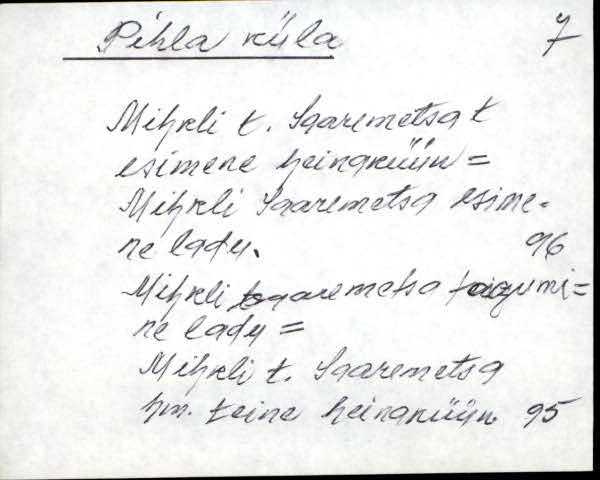 Pihla küla 7
Mihkli t. Saaremetsa t
esimene heinaküün =
Mihkli Saaremetsa esime-
ne ladu. 96
Mihkli Saaremetsa tagumi=
ne ladu =
Mihkli t. Saaremetsa
hm. teine heinaküün 95